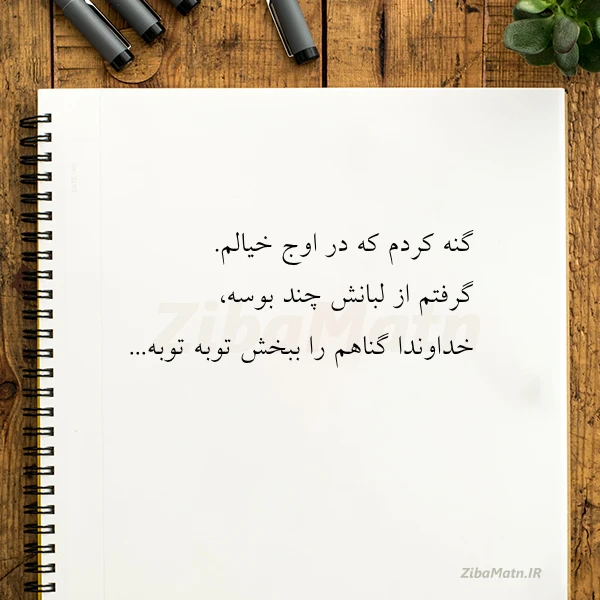 گنه کردم که در اوج خیالم.
گرفتم از لبانش چند بوسه،
خداوندا گناهم را ببخش توبه توبه...
ZibaMatn
ZibaMatn.IR